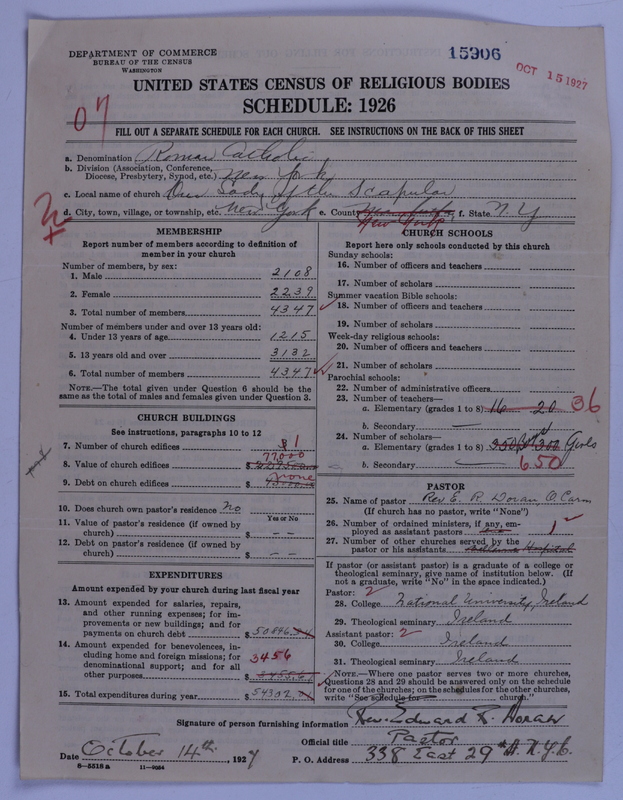 DEPARTMENT OF COMMERCE
BUREAU OF THE CENSUS
WASHINGTON
15906
OCT 15 1927
UNITED STATES CENSUS OF RELIGIOUS BODIES
SCHEDULE: 1926
07
FILL OUT A SEPARATE SCHEDULE FOR EACH CHURCH. SEE INSTRUCTIONS ON THE BACK OF THIS SHEET
a. Denomination Roman Catholic
b. Division (Association, Conference,
Diocese, Presbytery, Synod, etc.) New York
c. Local name of church Our Lady of the Scapular
d. City, town, village, or township, etc. New York e. County New York f. State N.Y
MEMBERSHIP
Report number of members according to definition of
member in your church
Number of members, by sex:
1. Male 2108
2. Female 2239
3. Total number of members 4347
Number of members under and over 13 years old:
4. Under 13 years of age 1215
5. 13 years old and over 3132
6. Total number of members 4347
NOTE.—The total given under Question 6 should be the
same as the total of males and females given under Question 3.
CHURCH BUILDINGS
See instructions, paragraphs 10 to 12
7. Number of church edifices 1
77,000
8. Value of church edifices $
9. Debt on church edifices $ none
10. Does church own pastor's residence? No
Yes or No
11. Value of pastor's residence (if owned by
church) $ – –
12. Debt on pastor's residence (if owned by
church) $ – –
EXPENDITURES
Amount expended by your church during last fiscal year
13. Amount expended for salaries, repairs,
and other running expenses; for im-
provements or new buildings; and for
payments on church debt $ 50846
14. Amount expended for benevolences, in-
cluding home and foreign missions; for
denominational support; and for all
other purposes $ 3456
15. Total expenditures during year $ 54302
CHURCH SCHOOLS
Report here only schools conducted by this church
Sunday schools:
16. Number of officers and teachers
17. Number of scholars
Summer vacation Bible schools:
18. Number of officers and teachers
19. Number of scholars
Week-day religious schools:
20. Number of officers and teachers
21. Number of scholars
Parochial schools:
22. Number of administrative officers
23. Number of teachers—
a. Elementary (grades 1 to 8) 16 20 36
b. Secondary —
24. Number of scholars—
a. Elementary (grades 1 to 8) 350 Boys 300 Girls
b. Secondary — 650
PASTOR
25. Name of pastor Rev E. R. Doran, O. Carm
(If church has no pastor, write "None")
26. Number of ordained ministers, if any, em-
ployed as assistant pastors 1
27. Number of other churches served by the
pastor or his assistants Hospital
If pastor (or assistant pastor) is a graduate of a college or
theological seminary, give name of institution below. (If
not a graduate, write "No" in the space indicated.)
Pastor: 2
28. College National University, Ireland
29. Theological seminary Ireland
Assistant pastor: 2
30. College Ireland
31. Theological seminary Ireland
NOTE.—Where one pastor serves two or more churches,
Questions 28 and 29 should be answered only on the schedule
for one of the churches; on the schedules for the other churches,
write "See schedule for church."
Signature of person furnishing information Rev. Edward R. Doran
Official title Pastor
Date October 14th, 1927
P. O. Address 338 East 29th St. N.Y.C.
8—5518 a 11—9254